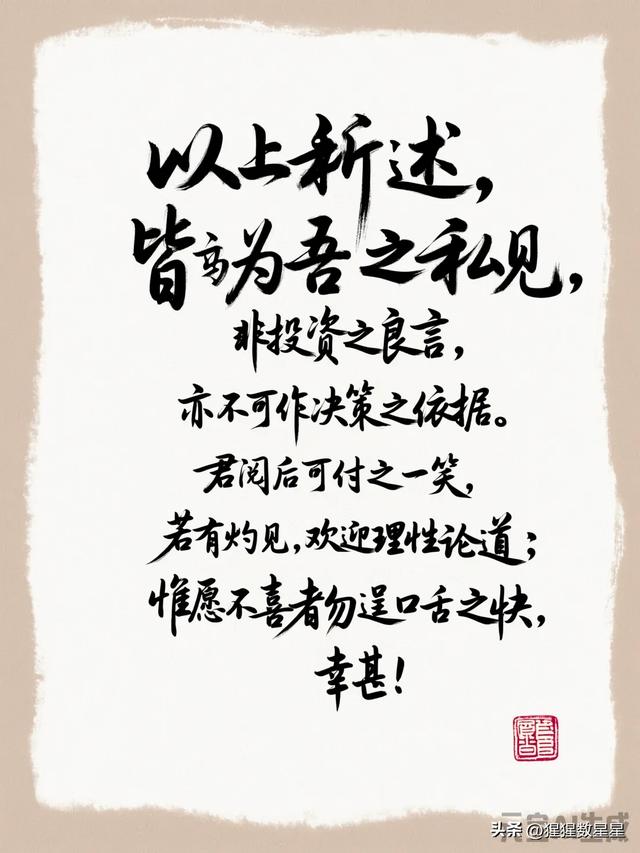 以上述，
皆为吾之私见，
非投资之良言，
亦不可作决策之依据。
君阅后可付之一笑，
若有灼见，欢迎理性论道；
惟愿不喜者勿逞口舌之快，
幸甚！
元宝AI生成
头条 @猩猩数星星